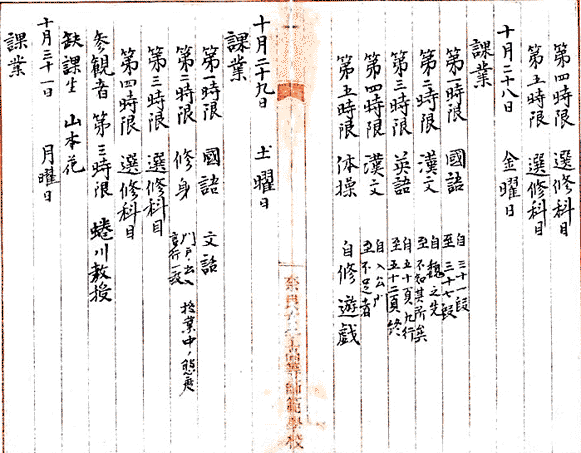 第四時限 選修科目
第五時限 選修科目
十月二十八日 金曜日
課業
第一時限 國語 自 三十一段 至 三十七段
第二時限 漢文 自魏之先 至不知其所矣
第三時限 英語 自五十頁九行 至五十二頁終
第四時限 漢文 自入公門 至不足者
第五時限 体操 自修遊戯
奈良女子高等師範學校
十月二十九日 土曜日
課業
第一時限 國語 文話
第二時限 修身 門戸出入 言行一致 授業中ノ態度
第三時限 選修科目
第四時限 選修科目
参観者 第三時限 蜷川教授
缺課生 山本花
十月三十一日 月曜日
課業